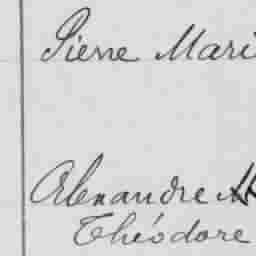 Pierre Mari
Alexandre
Théodore